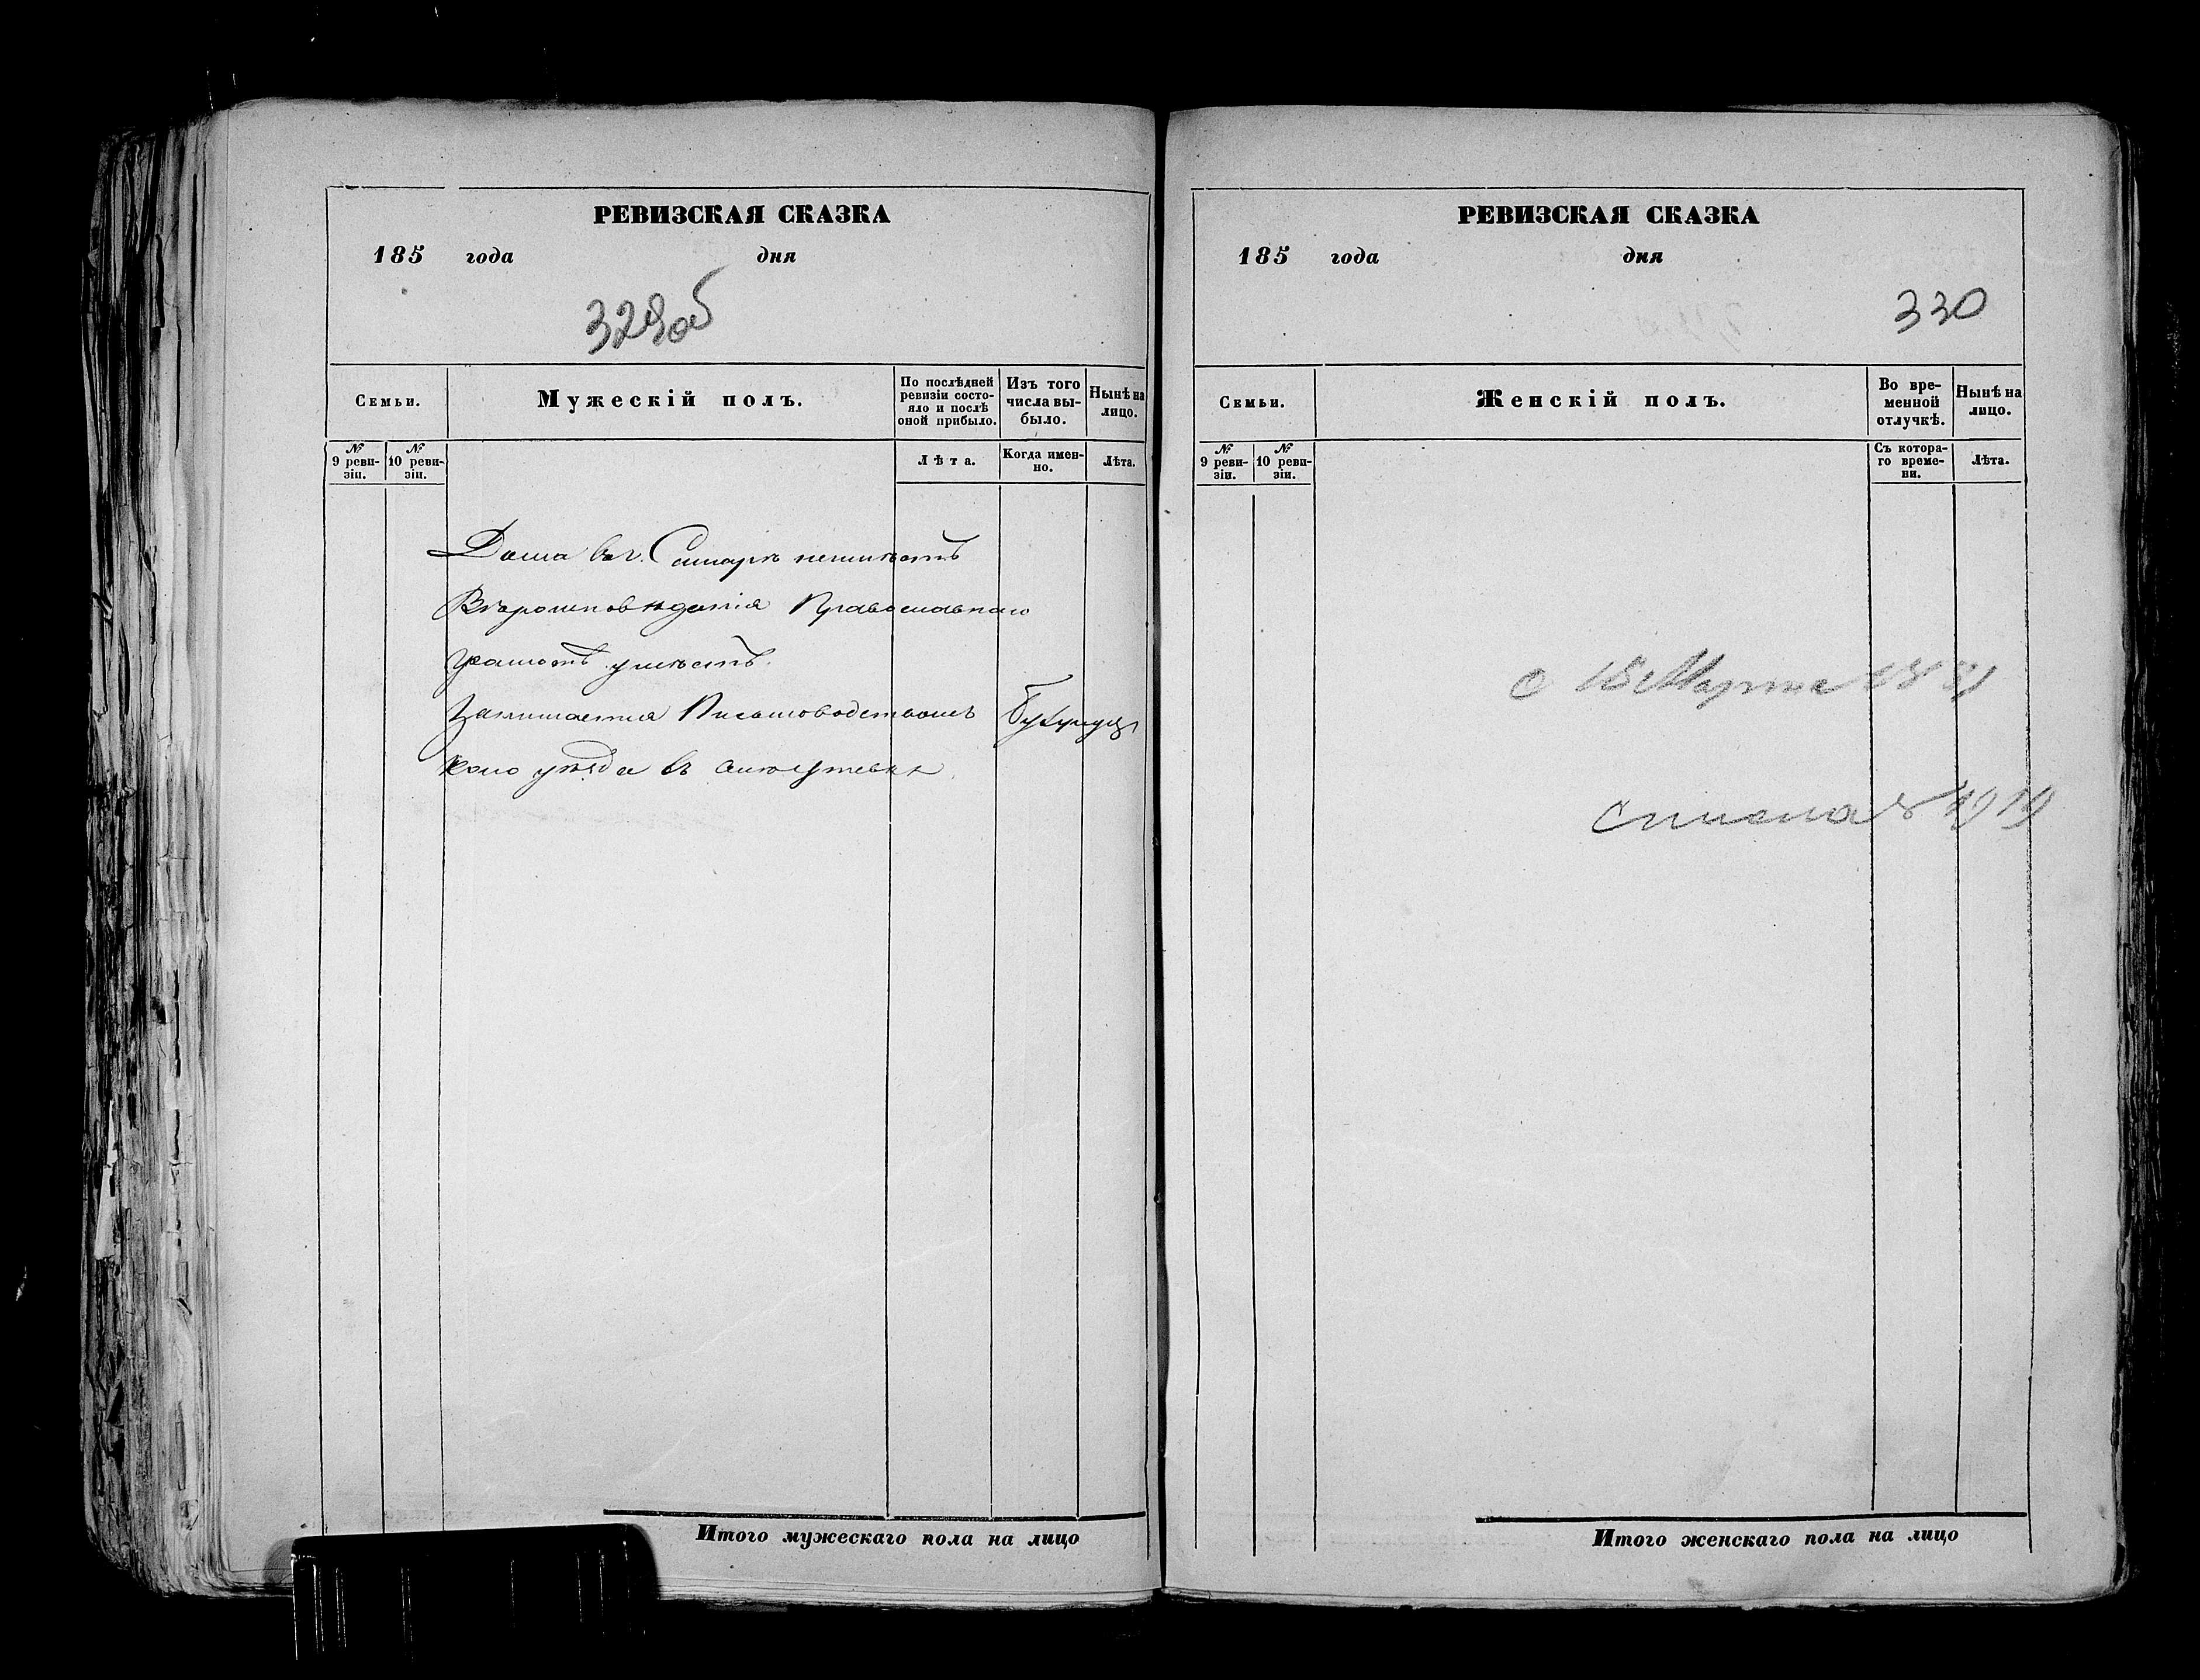 РЕВИЗСКАЯ СКАЗКА
185 года дня
329об
Семьи.
Мужескій полъ.
По послѣдней ревизіи состо-
яло и послѣ
оной прибыло.
Изъ того
числа вы-
было.
Нынѣ на
лицо.
№
9 реви-
зіи.
№
10 реви-
зіи.
Лѣта.
Когда имен-
но.
Лѣта.
Дома въ г. Самарѣ неимѣетъ
Вѣроисповѣданія Православнаго
грамотѣ умѣетъ.
Занимается Письмоводствомъ
кого уѣзда въ
Итого мужескаго пола на лицо
РЕВИЗСКАЯ СКАЗКА
185 года дня
330
Семьи.
Женскій полъ.
Во вре-
менной
отлучкѣ.
Нынѣ на
лицо.
№
9 реви-
зіи.
№
10 реви-
зіи.
Съ котора-
го време-
ни.
Лѣта.
с 15 Марта
Итого женскаго пола на лицо